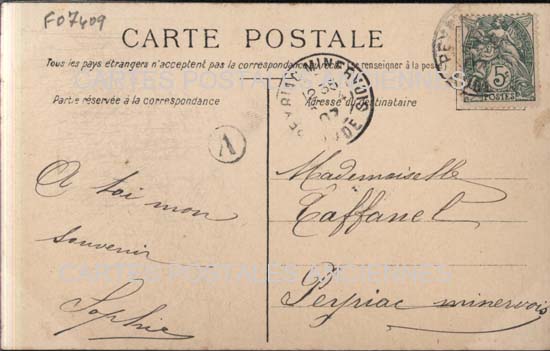 F07409
CARTE POSTALE
Tous les pays étrangers n'acceptent pas la correspondance au recto. Se renseigner à la poste
Partie réservée à la correspondance
Adresse du destinataire
MINERVOIS
AUDE
07
PEY
5c
POSTES
A
A toi mon
souvenir
Sophie
Mademoiselle
Taffanel
Peyriac minervois
CARTES POSTALES ANCIENNES
CARTES POSTALES ANCIENNES